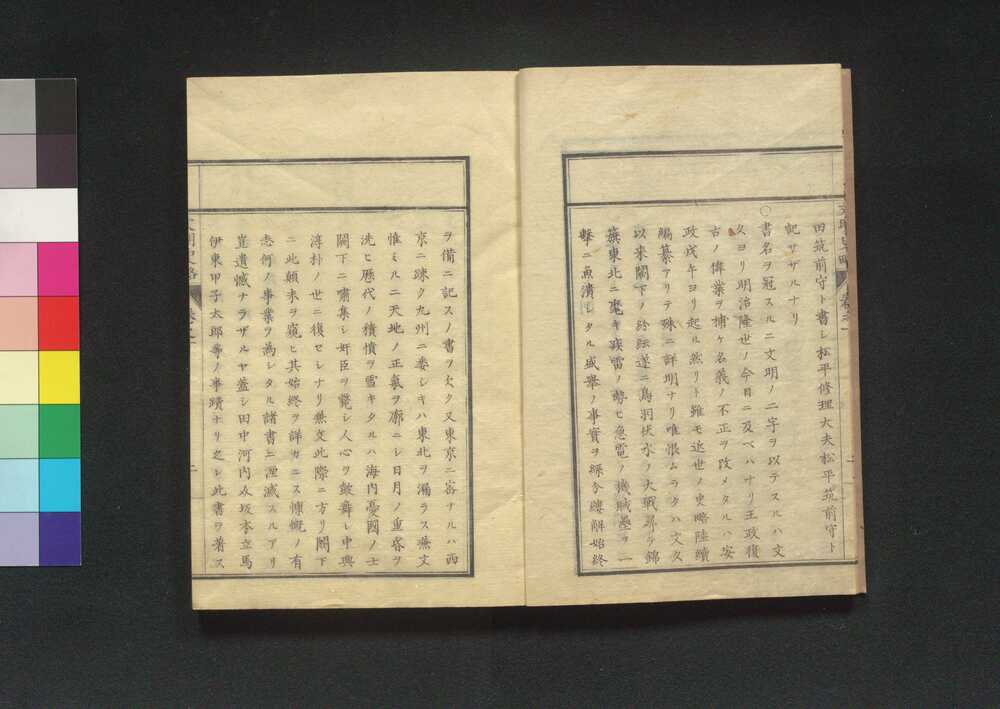 田筑前守ト書シ松平修理大夫松平筑前守ト
記サザルナリ
○書名ヲ冠スルニ文明ノ二字ヲ以テスルハ文
久ヨリ明治隆世ノ今日ニ及ベハナリ王政復
古ノ偉業ヲ補ケ名義ノ不正ヲ改メタルハ安
政戊午ヨリ起ル然リト雖モ近世ノ史略陸續
編纂アリテ殊ニ詳明ナリ唯恨ムラクハ文久
以来闕下ノ紛紜遂ニ鳥羽伏水ノ大戦尋ヲ錦
籏東北ニ麾キ疾雷ノ勢ヒ急電ノ機賊壘ヲ一
撃ニ魚潰シタル盛擧ノ事實ヲ縲分縷解始終
ヲ備ニ記スノ書ヲ欠ク又東京ニ審ナルハ西
京ニ踈ク九州ニ委シキハ東北ヲ漏ラス蕪文
惟ミルニ天地ノ正氣ヲ廓ニシ日月ノ重昏ヲ
洗ヒ歴代ノ積憤ヲ雪キタルハ海内憂國ノ士
闕下ニ嘯集シ奸臣ヲ斃シ人心ヲ皷舞シ中興
淳朴ノ世ニ復セシナリ蕪文此際ニ方リ闕下
ニ此顛末ヲ窺ヒ其始終ヲ詳カニス慷慨ノ有
志何ノ事業ヲ為シタル諸書ニ湮滅スルアリ
豈遺憾ナラザルヤ蓋シ田中河内介坂本立馬
伊東甲子太郎等ノ事蹟ナリ之レ此書ヲ著ス